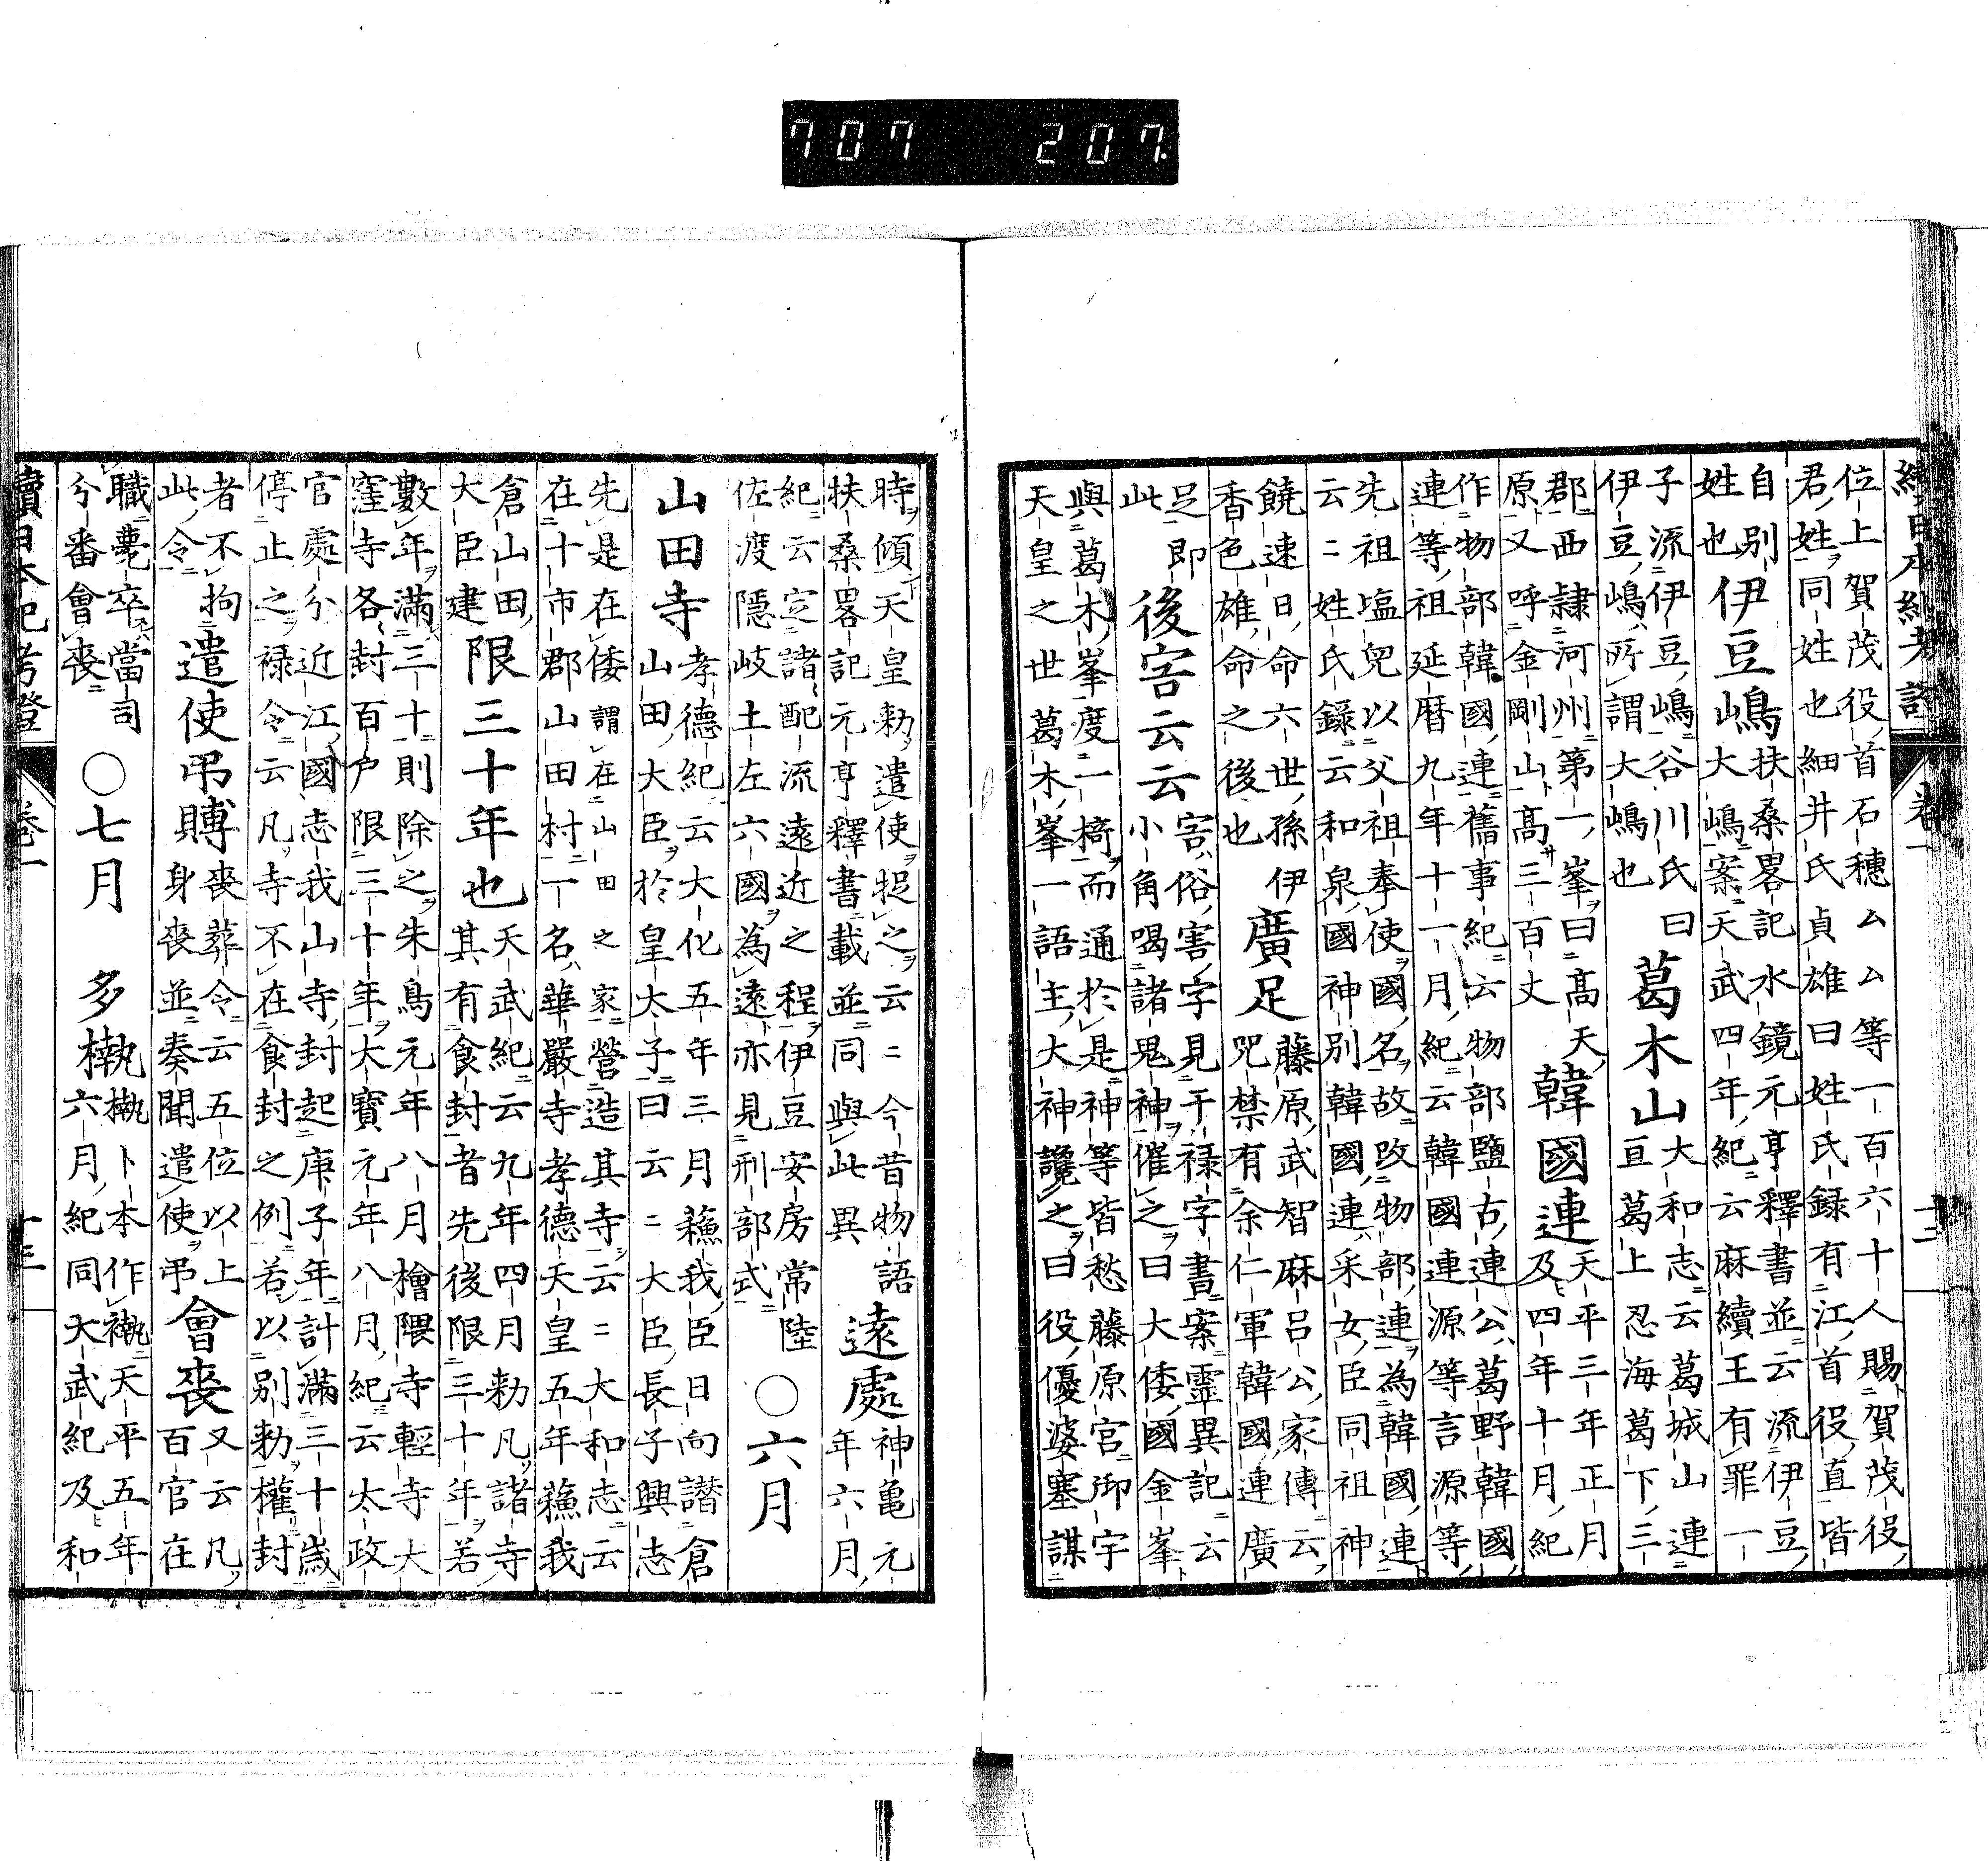 707 207.
續日本紀考證 卷一 十二
位上賀茂役首石穗厶厶等一百六十人賜賀茂役
君姓同姓也細井氏貞雄曰姓氏録有江首役直皆
自別
姓也
伊豆嶋
扶桑畧記水鏡元亨釋書並云流伊豆
大嶋案天武四年紀云麻續王有罪一
子流伊豆嶋谷川氏曰
伊豆嶋所謂大嶋也
葛木山
大和志云葛城山連
亘葛上忍海葛下三
郡西隷河州第一峯曰高天
原又呼金剛山高三百丈
韓國連
天平三年正月
及四年十月紀
作物部韓國連舊事紀云物部鹽古連公葛野韓國
連等祖延暦九年十一月紀云韓國連源等言源等
先祖塩兒以父祖奉使國名故改物部連為韓國連
云〻姓氏録云和泉國神別韓國連采女臣同祖神
饒速日命六世孫伊
香色雄命之後也
廣足
藤原武智麻呂公家傳云
咒禁有余仁軍韓國連廣
足即
此
後害云云
害俗害字見干禄字書案靈異記云
小角喝諸鬼神催之曰大倭國金峯
與葛木峯度一椅而通於是神等皆愁藤原宮御宇
天皇之世葛木峯一語主大神讒之曰役優婆塞謀
時傾天皇勅遣使捉之云〻今昔物語
扶桑畧記元亨釋書載並同與此異
遠處
神亀元
年六月
紀云定諸配流遠近之程伊豆安房常陸
佐渡隠岐土左六國為遠亦見刑部式
○六月
山田寺
孝德紀云大化五年三月蘓我臣日向譖倉
山田大臣於皇太子曰云〻大臣長子興志
先是在倭謂在山田之家營造其寺云〻大和志云
在十市郡山田村一名華嚴寺孝德天皇五年蘓我
倉山田
大臣建
限三十年也
天武紀云九年四月勅凡諸寺
其有食封者先後限三十年若
數年滿三十則除之朱鳥元年八月檜隈寺輕寺大
窪寺各封百户限三十年大寶元年八月紀云太政
官處分近江國志我山寺封起庚子年計滿三十歳
停止之禄令云凡寺不在食封之例若以別勅權封
者不拘
此令
遣使弔賻
喪葬令云五位以上
身喪並奏聞遣使弔
會喪
又云凡
百官在
職薨卒當司
分番會喪
○七月
多檄
檄卜本作褹天平五年
六月紀同天武紀及和
續日本紀考證 卷一 十三